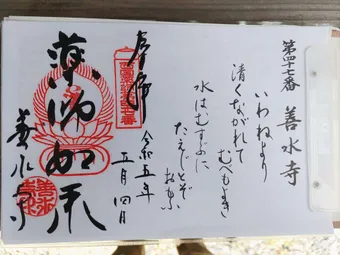 第四十七番 善水寺
いわねより
清くながれて
むべもまき
水はむすぶに
たえじとぞ
おもふ
奉拝
令和五年
五月四日
薬師如来
善水寺